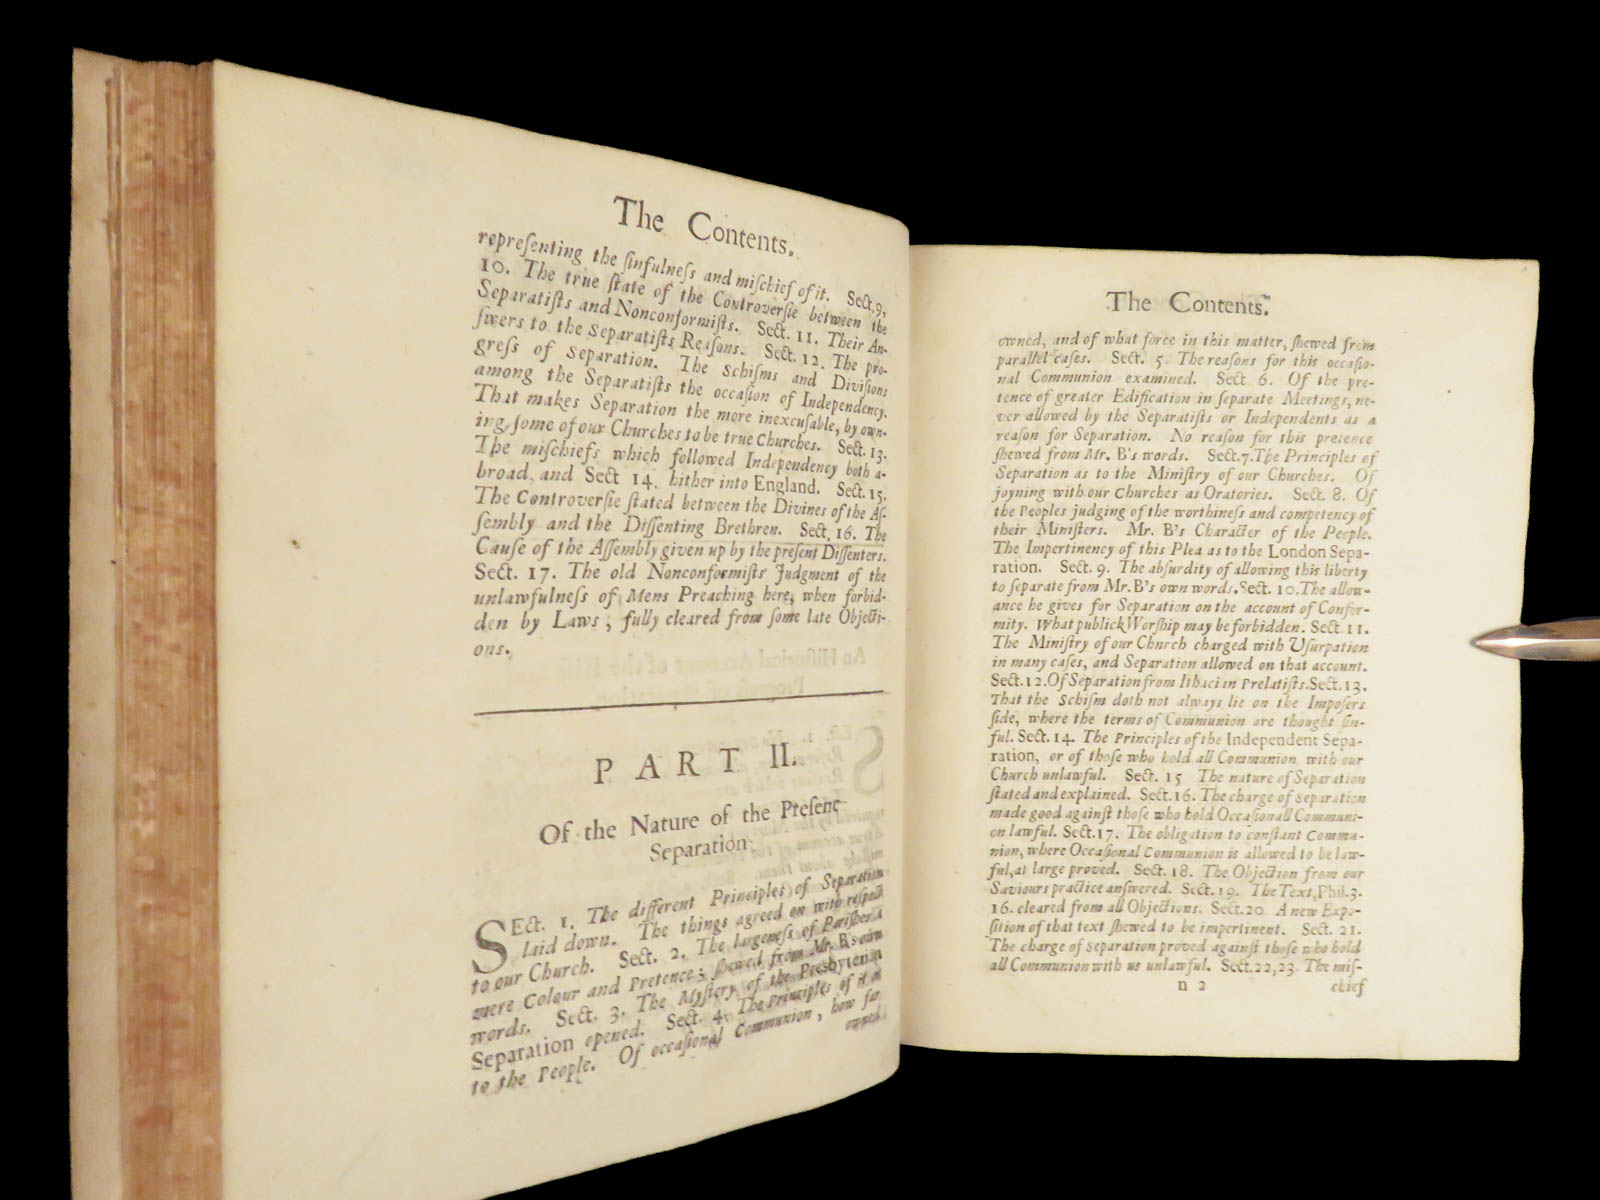 The Contents.
repreſenting the ſinfulneſs and miſchief of it. Sect. 9,
10. The true ſtate of the Controverſie between the
Separatiſts and Nonconformiſts. Sect. 11. Their An-
ſwers to the Separatiſts Reaſons. Sect. 12. The pro-
greſs of Separation. The Schiſms and Diviſions
among the Separatiſts the occaſion of Independency.
That makes Separation the more inexcuſable, by own-
ing ſome of our Churches to be true Churches. Sect. 13.
The miſchiefs which followed Independency both a-
broad, and Sect 14. hither into England. Sect. 15.
The Controverſie ſtated between the Divines of the Aſ-
ſembly and the Diſſenting Brethren. Sect. 16. The
Cauſe of the Aſſembly given up by the preſent Diſſenters.
Sect. 17. The old Nonconformiſts Judgment of the
unlawfulneſs of Mens Preaching here, when forbid-
den by Laws, fully cleared from ſome late Objecti-
ons.
PART II.
Of the Nature of the Preſent
Separation.
SEct. 1. The different Principles of Separation
laid down. The things agreed on with reſpect
to our Church. Sect. 2. The largeneſs of Pariſhes a
mere Colour and Pretence; ſhewed from Mr. B's own
words. Sect. 3. The Myſtery of the Presbyterian
Separation opened. Sect. 4. The Principles of it as
to the People. Of occaſional Communion, how far
owned,
The Contents.
owned, and of what force in this matter, ſhewed from
parallel caſes. Sect. 5. The reaſons for this occaſio-
nal Communion examined. Sect. 6. Of the pre-
tence of greater Edification in ſeparate Meetings, ne-
ver allowed by the Separatiſts or Independents as a
reaſon for Separation. No reaſon for this pretence
ſhewed from Mr. B's words. Sect. 7. The Principles of
Separation as to the Miniſtry of our Churches. Of
joyning with our Churches as Oratories. Sect. 8. Of
the Peoples judging of the worthineſs and competency of
their Miniſters. Mr. B's Character of the People.
The Impertinency of this Plea as to the London Sepa-
ration. Sect. 9. The abſurdity of allowing this liberty
to ſeparate from Mr. B's own words. Sect. 10. The allow-
ance he gives for Separation on the account of Confor-
mity. What publick Worſhip may be forbidden. Sect. 11.
The Miniſtry of our Church charged with Uſurpation
in many caſes, and Separation allowed on that account.
Sect. 12. Of Separation from Ithacian Prelatiſts. Sect. 13.
That the Schiſm doth not always lie on the Impoſers
ſide, where the terms of Communion are thought ſin-
ful. Sect. 14. The Principles of the Independent Sepa-
ration, or of thoſe who hold all Communion with our
Church unlawful. Sect. 15 The nature of Separation
ſtated and explained. Sect. 16. The charge of Separation
made good againſt thoſe who hold Occaſionall Communi-
on lawful. Sect. 17. The obligation to conſtant Commu-
nion, where Occaſional Communion is allowed to be law-
ful, at large proved. Sect. 18. The Objection from our
Saviours practice anſwered. Sect. 19. The Text, Phil. 3.
16. cleared from all Objections. Sect. 20 A new Expo-
ſition of that text ſhewed to be impertinent. Sect. 21.
The charge of Separation proved againſt thoſe who hold
all Communion with us unlawful. Sect. 22, 23. The miſ-
n 2 chief